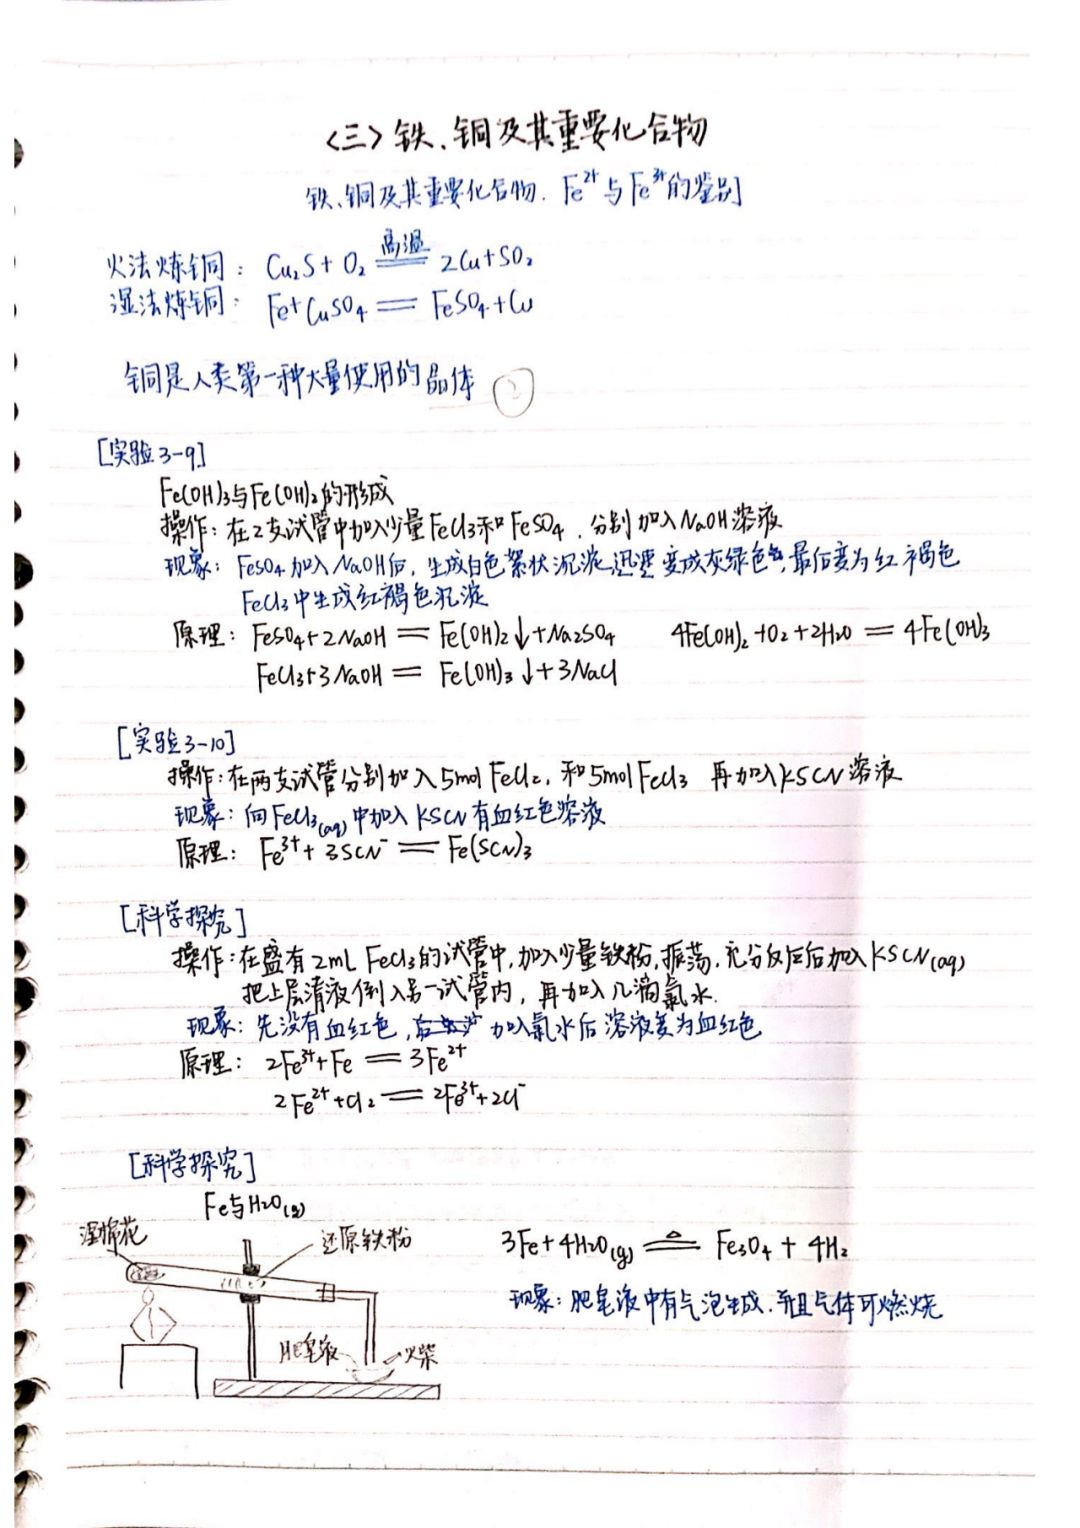 <三>铁、铜及其重要化合物
铁、铜及其重要化合物. Fe²⁺与Fe³⁺的鉴别
火法炼铜: Cu₂S + O₂ 高温 ══ 2Cu+SO₂
湿法炼铜: Fe+CuSO₄ ══ FeSO₄+Cu
铜是人类第一种大量使用的晶体
[实验3-9]
Fe(OH)₃与Fe(OH)₂的形成
操作: 在2支试管中加入少量FeCl₃和FeSO₄, 分别加入NaOH溶液
现象: FeSO₄加入NaOH后, 生成白色絮状沉淀迅速变成灰绿色, 最后变为红褐色
FeCl₃中生成红褐色沉淀
原理: FeSO₄+2NaOH ══ Fe(OH)₂↓+Na₂SO₄ 4Fe(OH)₂+O₂+2H₂O ══ 4Fe(OH)₃
FeCl₃+3NaOH ══ Fe(OH)₃↓+3NaCl
[实验3-10]
操作: 在两支试管分别加入5mol FeCl₂, 和5mol FeCl₃ 再加入KSCN溶液
现象: 向FeCl₃(aq)中加入KSCN有血红色溶液
原理: Fe³⁺+3SCN⁻ ══ Fe(SCN)₃
[科学探究]
操作: 在盛有2mL FeCl₃的试管中, 加入少量铁粉, 振荡, 充分反应后加入KSCN(aq)
把上层清液倒入另一试管内, 再加入几滴氯水.
现象: 先没有血红色, 加入氯水后溶液变为血红色
原理: 2Fe³⁺+Fe ══ 3Fe²⁺
2Fe²⁺+Cl₂ ══ 2Fe³⁺+2Cl⁻
[科学探究]
Fe与H₂O(g)
湿棉花
还原铁粉
3Fe+4H₂O(g) ══△ Fe₃O₄ + 4H₂
现象: 肥皂液中有气泡生成, 并且气体可燃烧
肥皂液
火柴